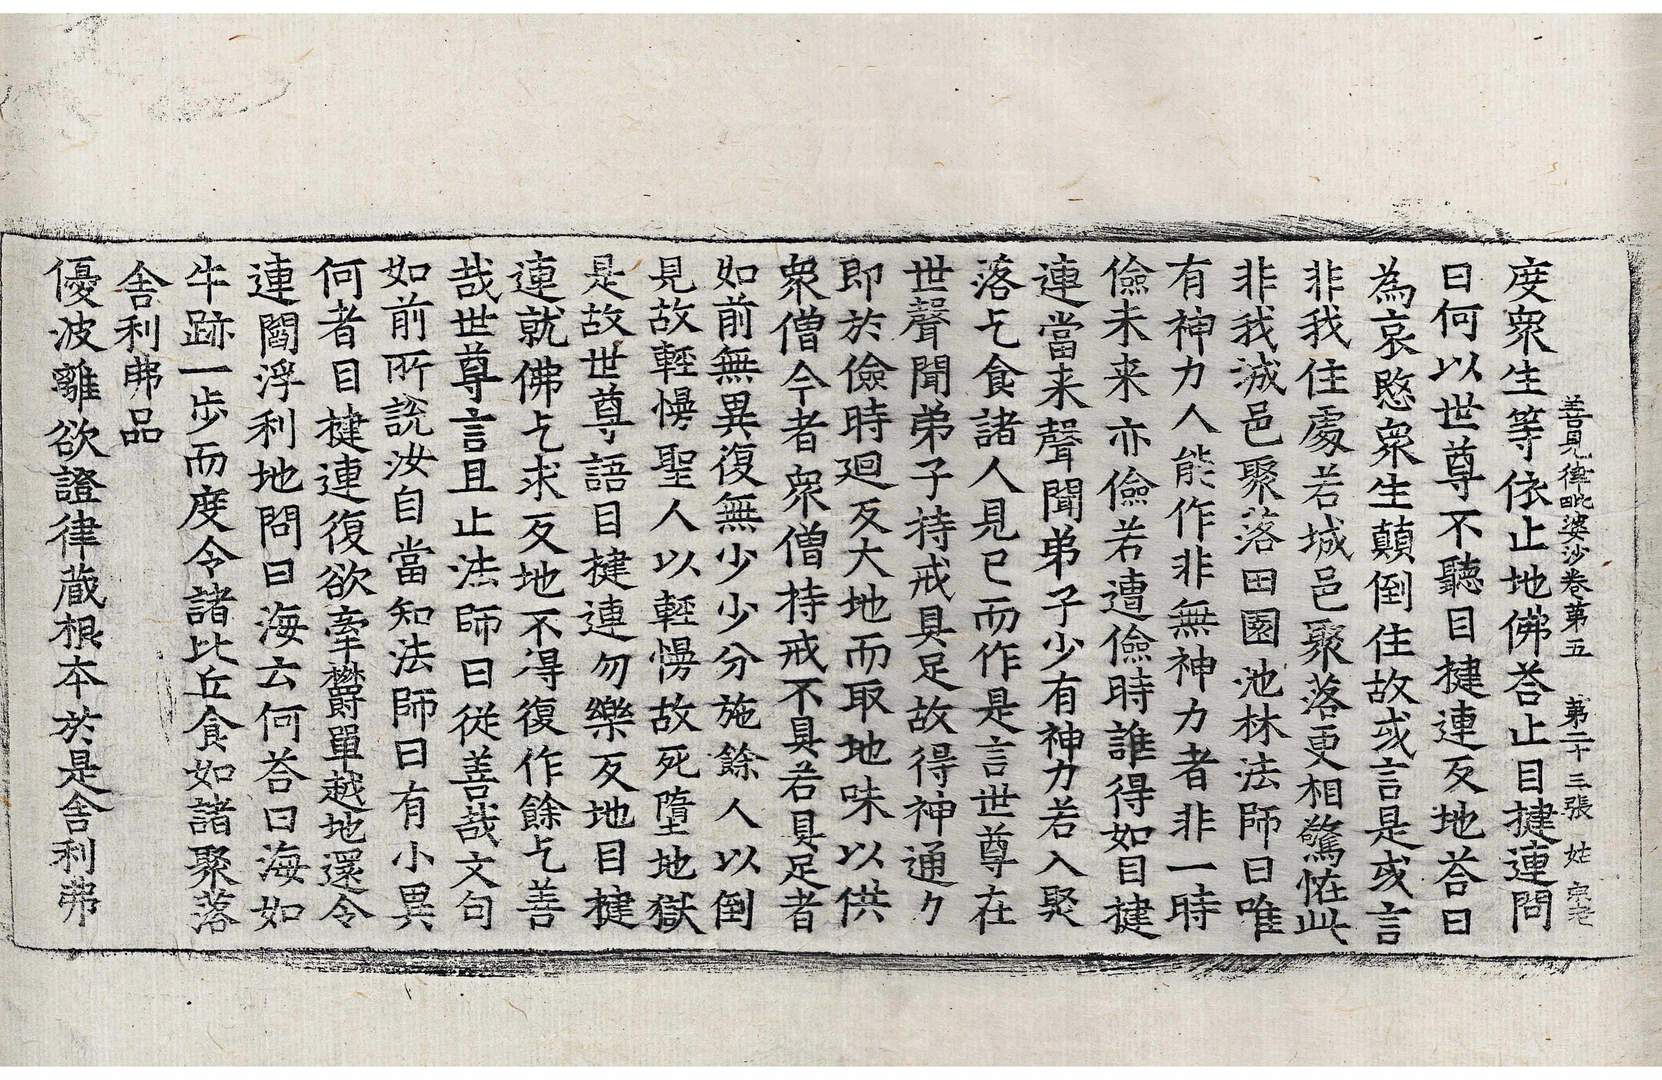 善見律毗婆沙卷第五　第二十三張　姓
度衆生等依止地佛荅止目揵連問
曰何以世尊不聽目揵連反地荅曰
為哀愍衆生顛倒住故或言是或言
非我住處若城邑聚落更相驚恠此
非我城邑聚落田園池林法師曰唯
有神力人能作非無神力者非一時
儉未来亦儉若遭儉時誰得如目揵
連當来聲聞弟子少有神力若入聚
落乞食諸人見已而作是言世尊在
世聲聞弟子持戒具足故得神通力
即於儉時迴反大地而取地味以供
衆僧今者衆僧持戒不具若具足者
如前無異復無少少分施餘人以倒
見故輕慢聖人以輕慢故死墮地獄
是故世尊語目揵連勿樂反地目揵
連就佛乞求反地不得復作餘乞善
哉世尊言且止法師曰從善哉文句
如前所說汝自當知法師曰有小異
何者目揵連復欲牽欝單越地還令
連閻浮利地問曰海云何荅曰海如
牛跡一步而度令諸比丘食如諸聚落
舎利弗品
優波離欲證律蔵根本於是舎利弗